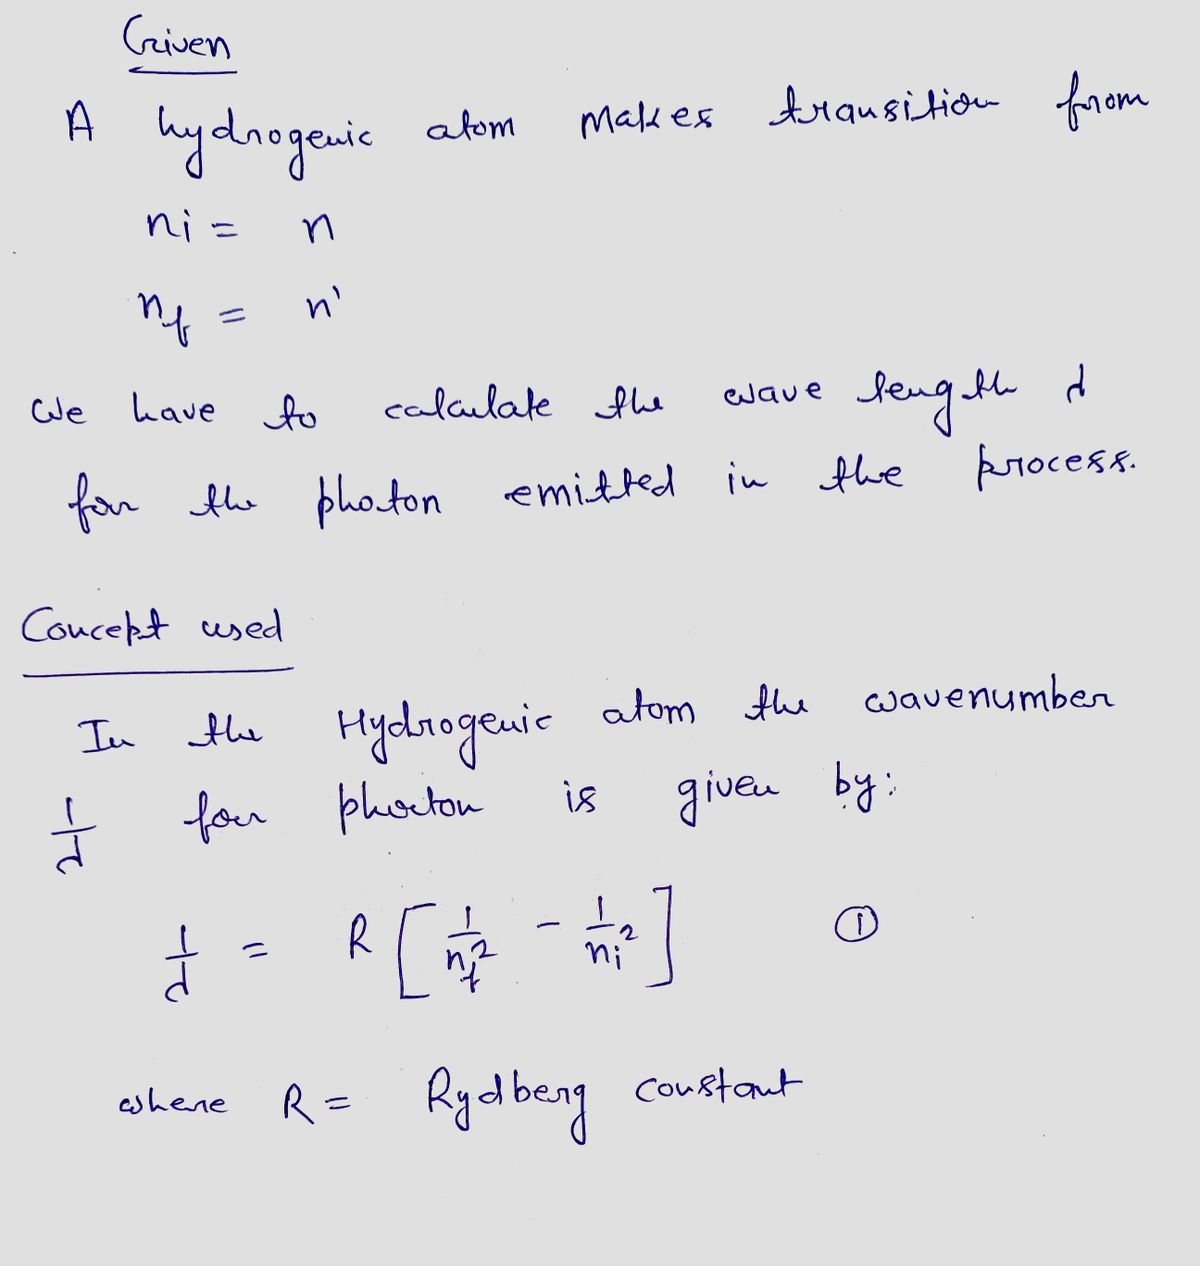 Given
A hydrogenic atom makes transition from
ni = n
nf = n'
We have to calculate the wave length λ
for the photon emitted in the process.
Concept used
In the Hydrogenic atom the wavenumber
1/λ for photon is given by:
1/λ = R [ 1/nf² - 1/ni² ] ①
where R = Rydberg constant